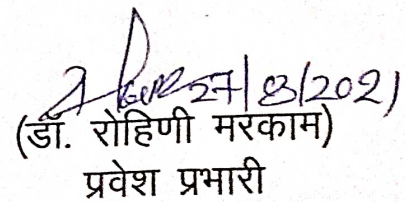 27/8/2021
(डॉ. रोहिणी मरकाम)
प्रवेश प्रभारी